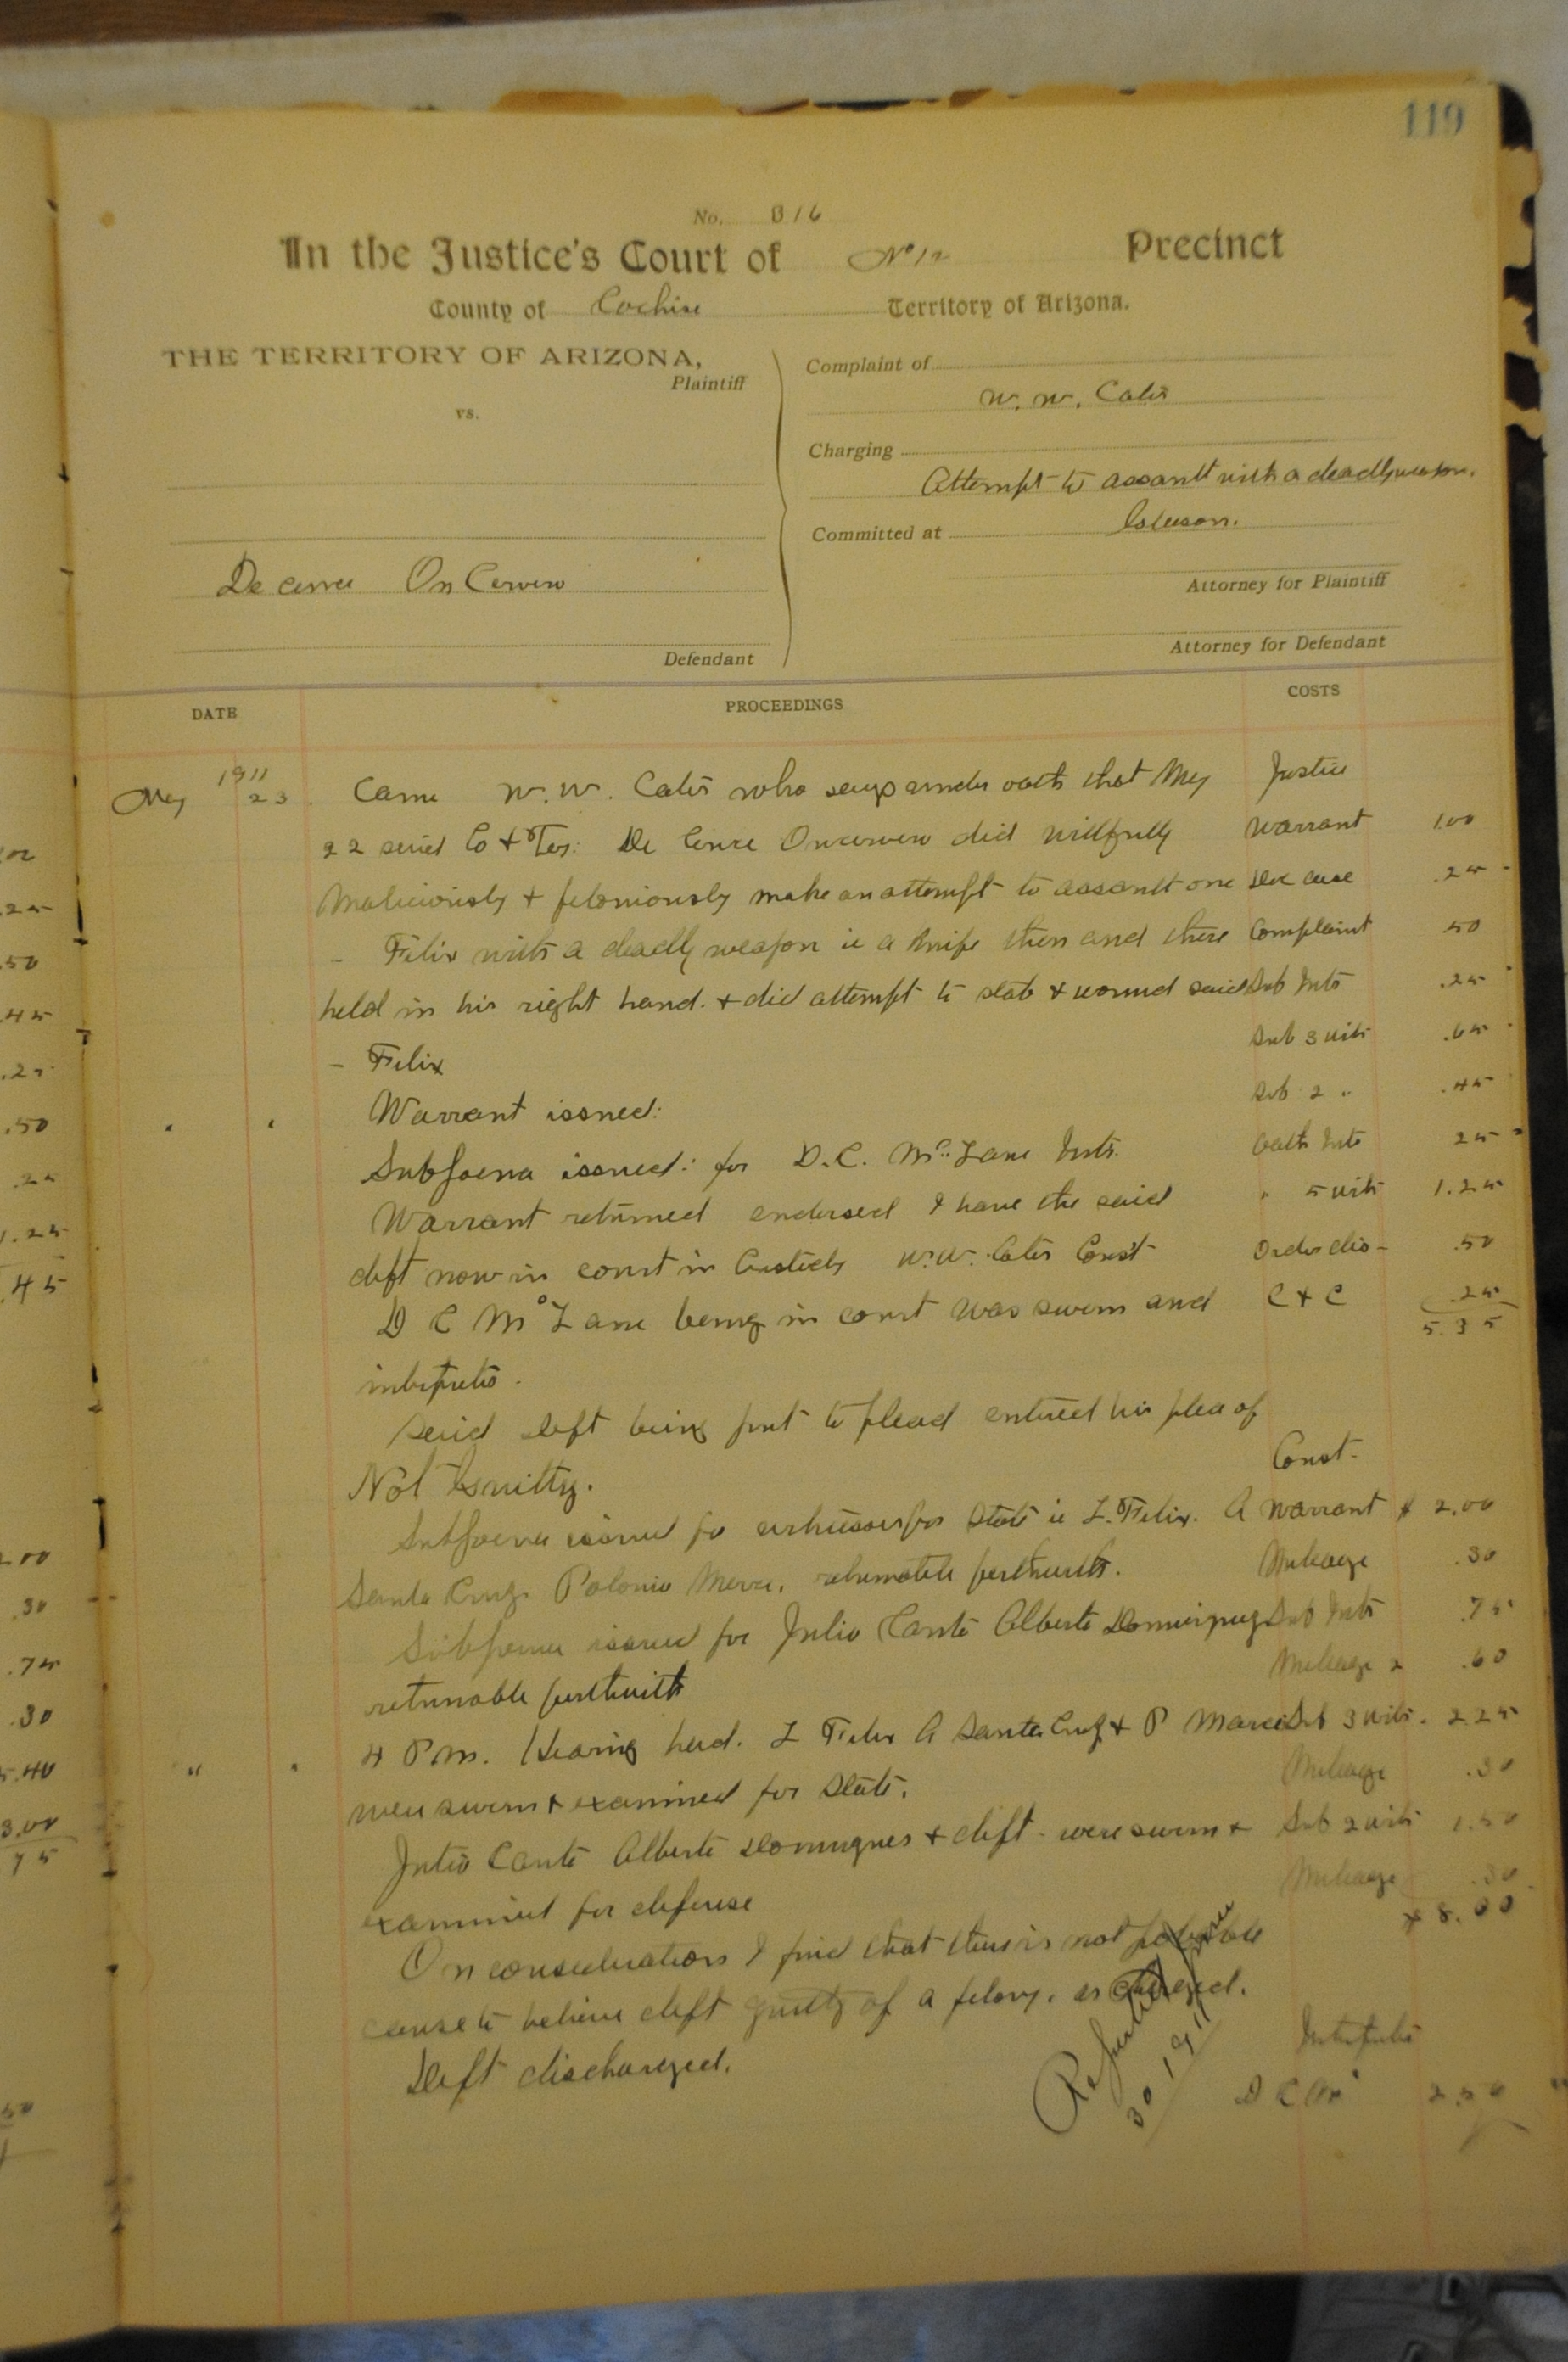 119
No. 316
In the Justice's Court of No 12 Precinct
County of Cochise Territory of Arizona.
THE TERRITORY OF ARIZONA,
Plaintiff
vs.
Defendant
Complaint of
W. W. Cates
Charging
Attempt to assault with a deadly weapon.
Committed at Gleeson.
Attorney for Plaintiff
Attorney for Defendant
DATE PROCEEDINGS COSTS
1911
May 23 Came W. W. Cates who says under oath that May Justice
22 said Co + Ter: De did willfully Warrant 1.00
Maliciously + feloniously make an attempt to assault one Doc case .25
- Felix with a deadly weapon ie a knife then and there Complaint .50
held in his right hand. + did attempt to stab + wound said Sub Intr .25
- Felix Sub 3 wits .65
Warrant issued: Sub 2 " .45
Subpoena issued: for D. C. McLane Intr. Oath Intr 25
Warrant returned endorsed I have the said " 5 wits 1.25
deft now in court in Custody W. W. Cates Const Order dis- .50
D C McLane being in court was sworn and C + C .25
5.35
interpreter.
Said Deft being put to plead entered his plea of
Not Guilty. Const-
Subpoena issued for witnesses for State ie L. Felix. A Warrant $ 2.00
Santa Cruz Polonio returnable forthwith. Mileage .30
Subpoena issued for Julio Cante Alberto Sub Intr .75
returnable forthwith Mileage 2 .60
" " 4 P.M. Hearing had. L Felix A Santa Cruz + P Sub 3 wits. 2.25
were sworn + examined for State. Mileage .30
Julio Cante Alberto + deft- were sworn + Sub 2 wits 1.50
examined for defense Mileage .30
$ 8.00
On consideration I find that there is not probable
cause to believe deft guilty of a felony. as charged.
Deft discharged.
30 1911
Interpreter
D C Mc 2.50